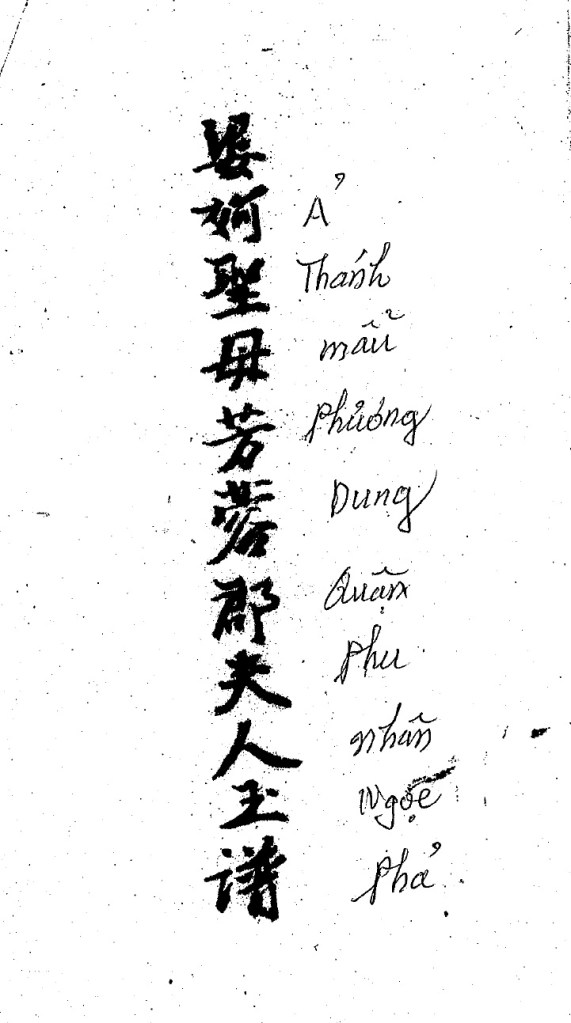 妸聖母芳蓉郡夫人玉譜
Ả
Thánh
mẫu
Phương
Dung
Quận
Phu
nhân
Ngọc
Phả